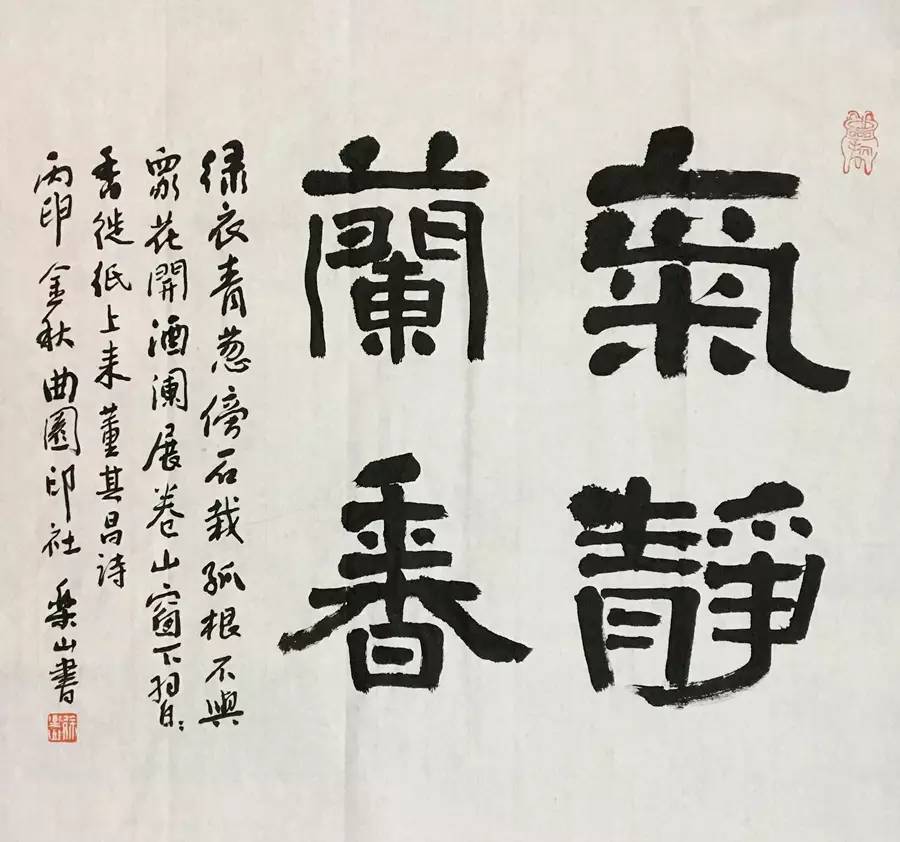 氣靜
蘭香
绿衣青葱傍石栽孤根不與
眾花開酒瀾展卷山窗下習々
香從纸上来董其昌詩
丙申金秋曲園印社樂山書